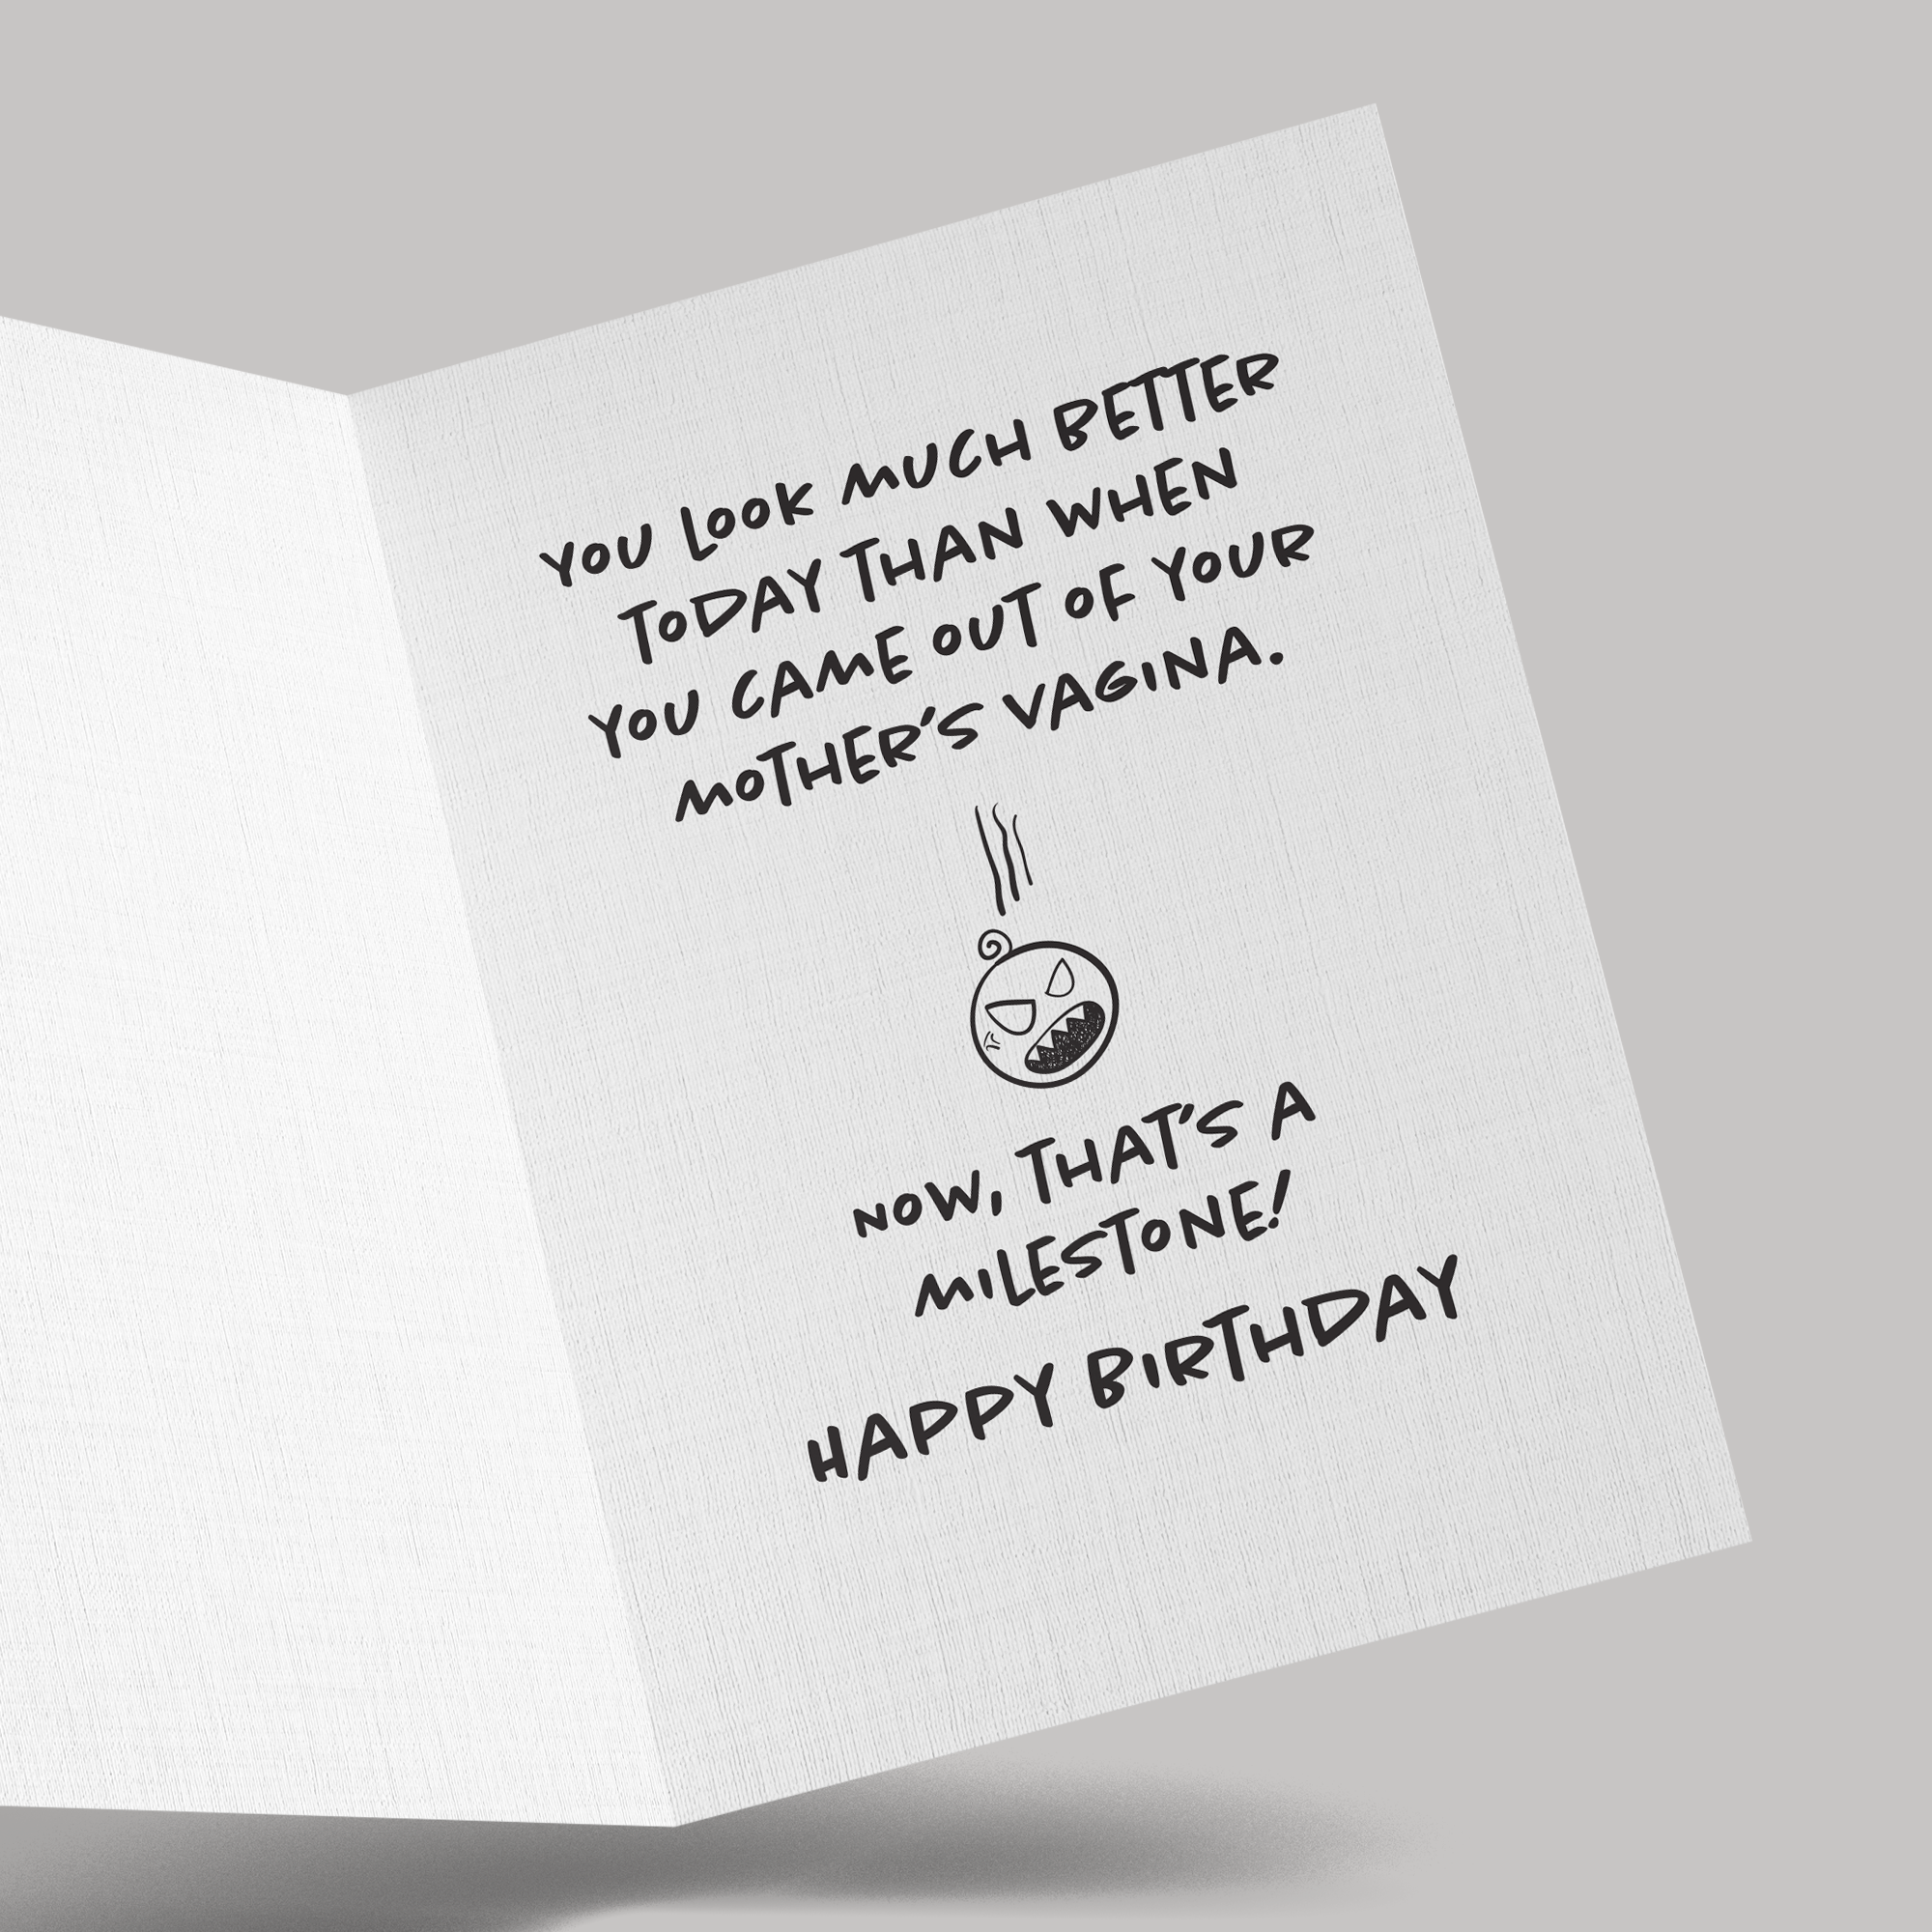 YOU LOOK MUCH BETTER
TODAY THAN WHEN
YOU CAME OUT OF YOUR
MOTHER'S VAGINA.
NOW, THAT'S A
MILESTONE!
HAPPY BIRTHDAY